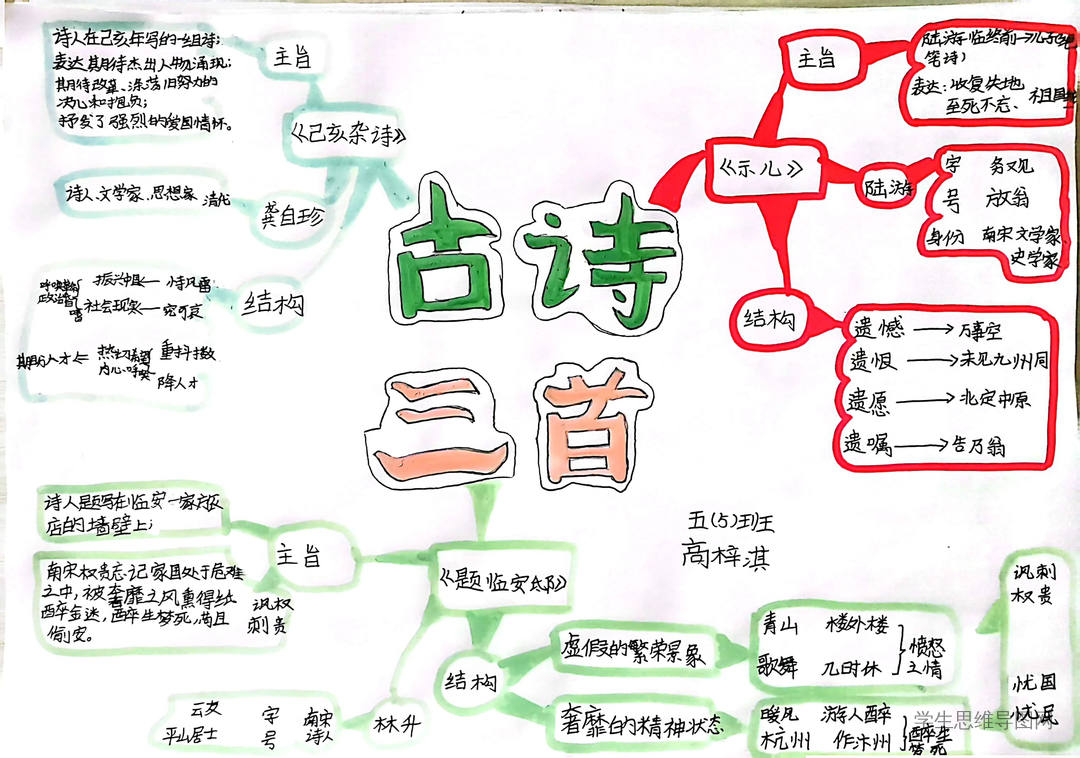 诗人在己亥年写的一组诗;
表达其期待杰出人物涌现;
期待改革、涤荡旧势力的
决心和担负;
抒发了强烈的爱国情怀。
主旨
《己亥杂诗》
诗人、文学家、思想家 清代
龚自珍
结构
振兴中华 恃风雷
社会现实 究可哀
热切希望
内心呼唤
重抖擞
降人才
期盼人才
古诗
三首
主旨
陆游临终前
笔诗)
表达:收复失地
至死不忘、祖国
《示儿》
陆游
字 务观
号 放翁
身份 南宋文学家、
史学家
结构
遗憾 → 万事空
遗恨 → 未见九州同
遗愿 → 北定中原
遗嘱 → 告乃翁
五(5)班
高梓淇
诗人是题写在临安一家旅
店的墙壁上;
主旨
南宋权贵忘记家国处于危难
之中,被奢靡之风熏得纸
醉金迷,醉生梦死,苟且
偷安。
讽权
刺贵
《题临安邸》
林升
云友 字 南宋
平山居士 号 诗人
结构
虚假的繁荣景象
青山 楼外楼
歌舞 几时休
愤怒
之情
奢靡的精神状态
暖风 游人醉
杭州 作汴州
醉生
梦死
讽刺
权贵
忧国
忧民
学生思维导图网